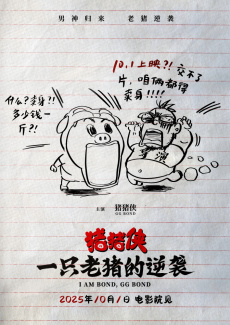 男神归来 老猪逆袭
10.1上映?!交不了
片,咱俩都得
卖身!!!!
什么?卖身!!
多少钱一
斤?!
导演
主演 猪猪侠
GG BOND
猪猪侠
一只老猪的逆袭
I AM BOND, GG BOND
2025年10月1日 电影院见